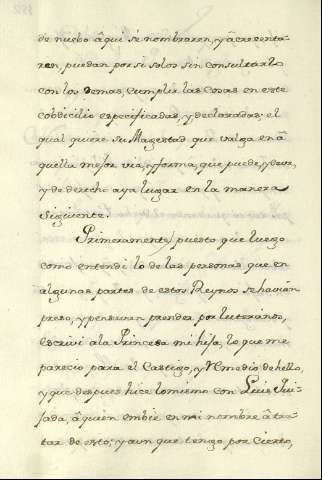 de nuebo âqui sé nombraren, y âcrecenta-
ren, puedan por si solos sin consultarlo
con los demas, cumplir las cosas en este
cobdicilio especificadas, y declaradas; el
qual quiere su Magestad que valga en â
quella mejor via, y forma, que puede, y deve,
y de derecho aya lugar en la manera
siguiente.
Primeramente, puesto que luego
como entendi lo de las personas que en
algunas partes de estos Reynos se havian
preso, y pensavan prender por luteranos,
escrivi a la Princesa mi hija, lo que me
parecio para el Castigo, y Remedio de hello,
y que despues hice lo mismo con Luis Qui-
jada, âquien embie en mi nombre â tra-
tar de esto; y aun que tengo por Cierto,